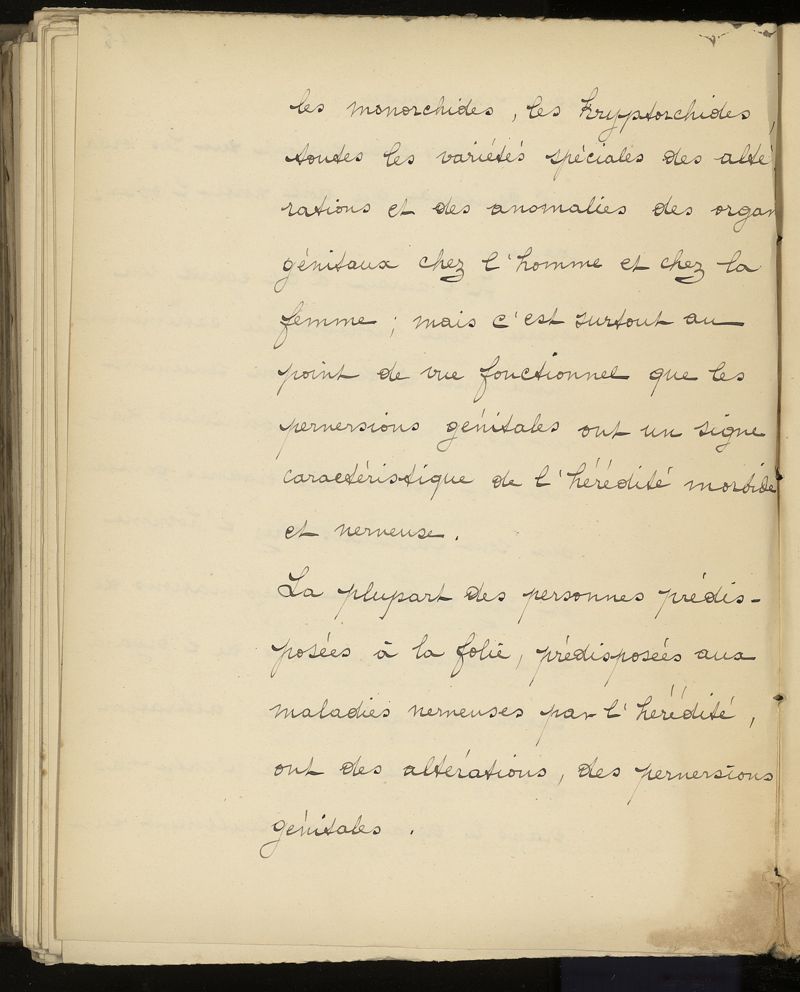 les monorchides, les Kryptorchides,
toutes les variétés spéciales des alté
rations et des anomalies des organ
génitaux chez l'homme et chez la
femme ; mais c'est surtout au
point de vue fonctionnel que les
perversions génitales ont un signe
caractéristique de l'hérédité morbide
et nerveuse.
La plupart des personnes prédis-
posées à la folie, prédisposées aux
maladies nerveuses par l'hérédité,
ont des altérations, des perversions
génitales.